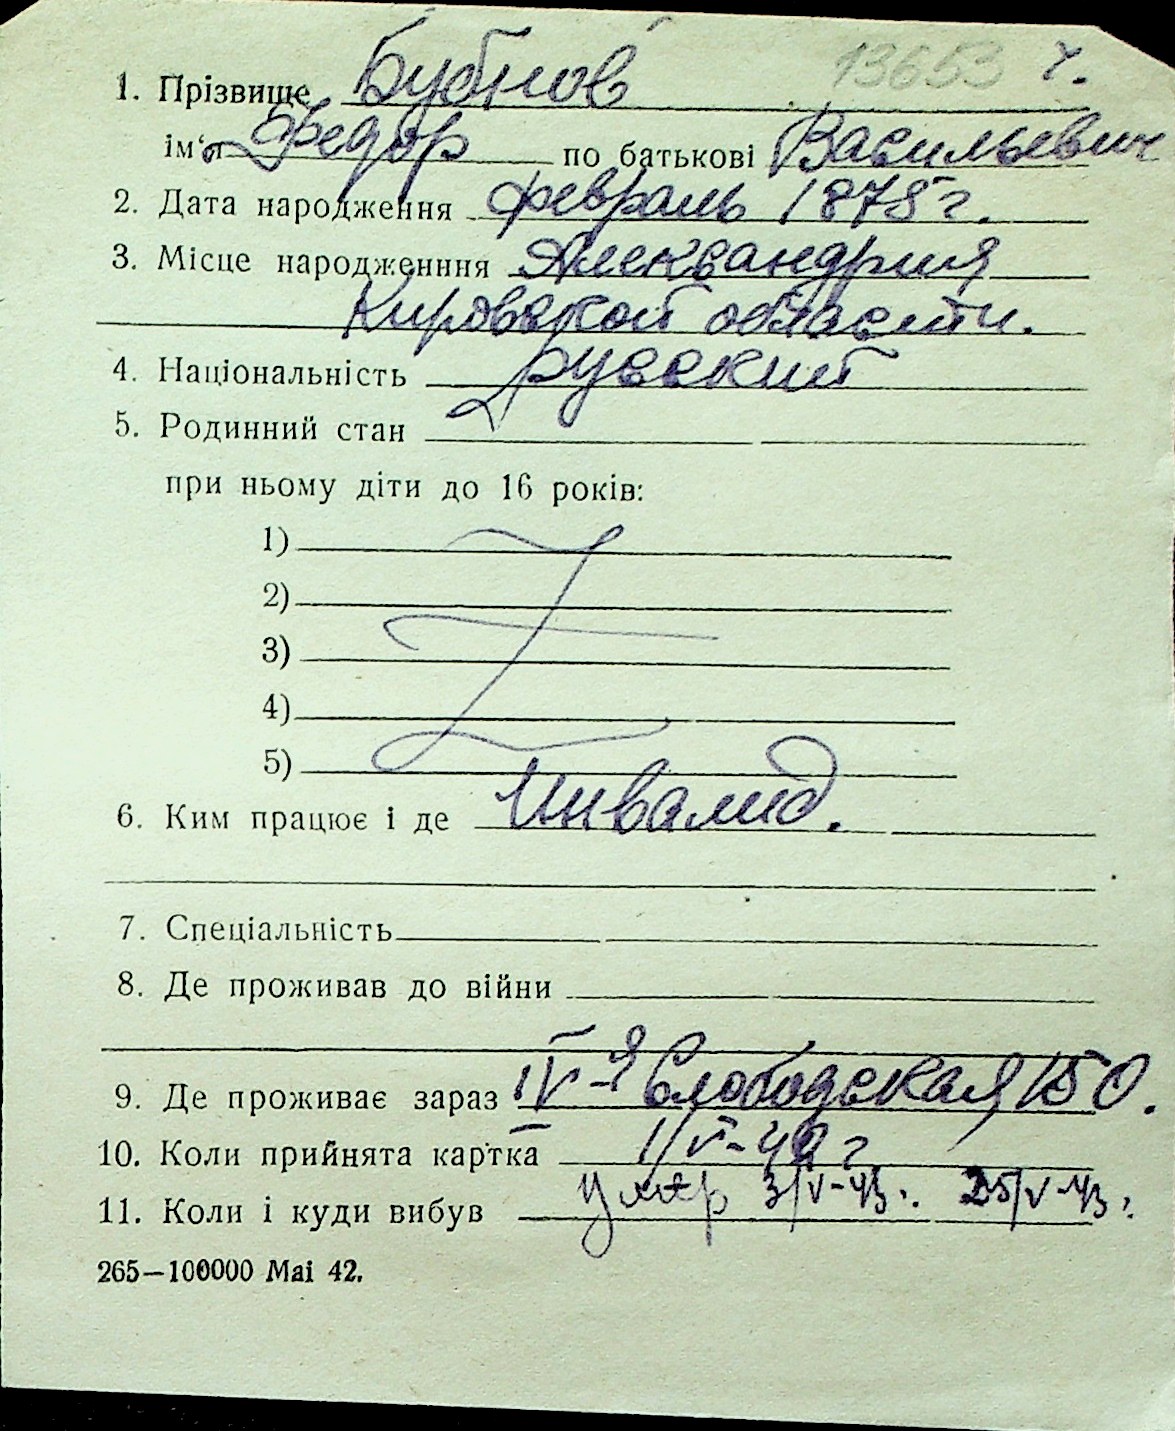 13653 ч.
1. Прізвище Бубнов
ім'я Федор по батькові Васильевич
2. Дата народження февраль 1875 г.
3. Місце народженння Александрия
Кировской области.
4. Національність русский
5. Родинний стан
при ньому діти до 16 років:
1)
2)
3)
4)
5)
6. Ким працює і де Инвалид.
7. Спеціальність
8. Де проживав до війни
9. Де проживає зараз IV-я Слободская 150.
10. Коли прийнята картка 1/V-42 г
11. Коли і куди вибув умер 3/V-43г. 25/V-43г.
265—100000 Маі 42.